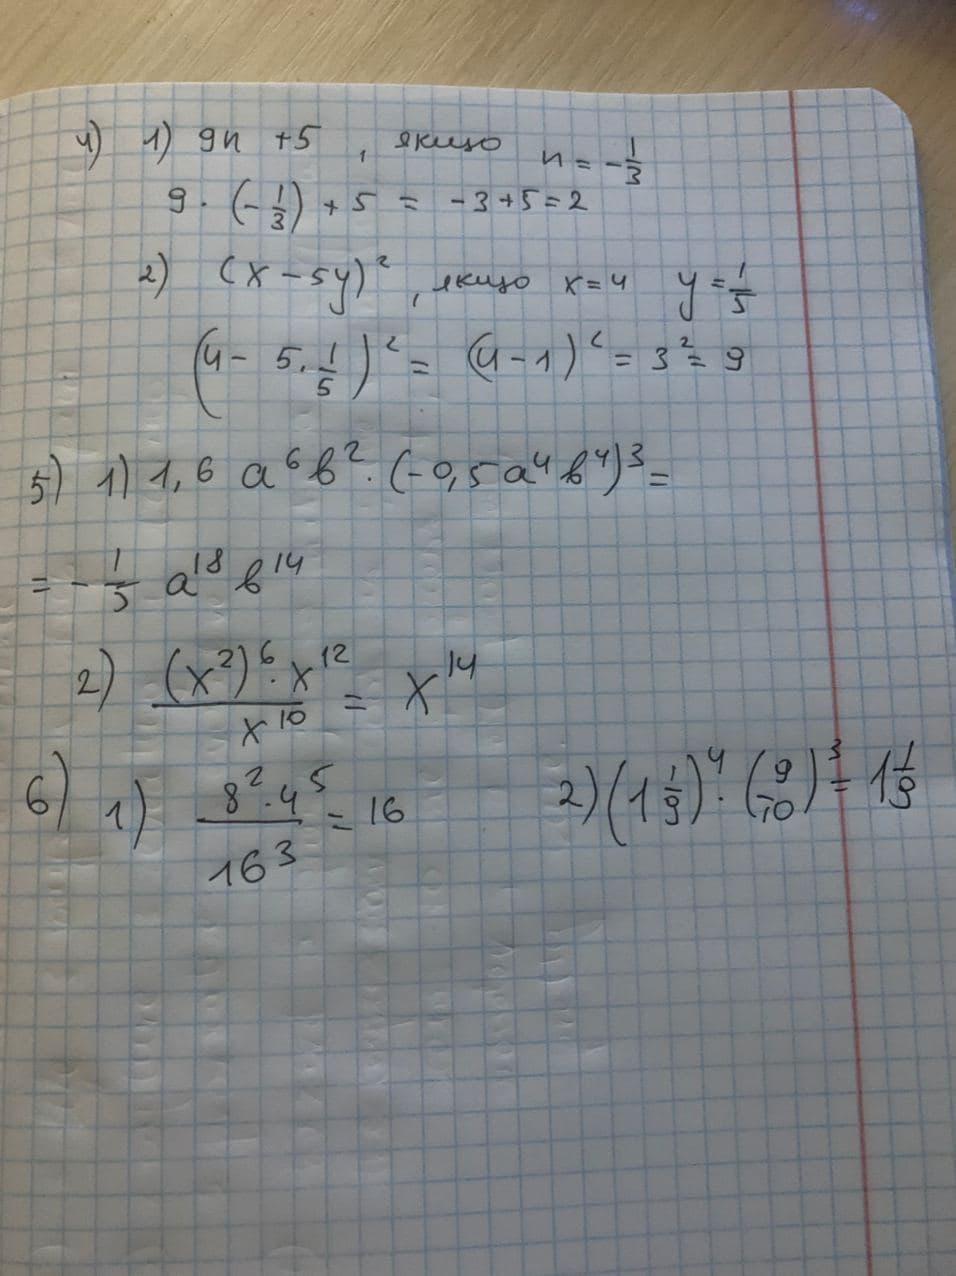 4) 1) 9n +5 , якщо n = -1/3
9 · (-1/3) + 5 = -3+5=2
2) (x - 5y)², якщо x=4 y=1/5
(4 - 5·1/5)² = (4-1)² = 3² = 9
5) 1) 1,6 a⁶b² · (-0,5a⁴b⁴)³ =
= -1/5 a¹⁸ b¹⁴
2) (x²)⁶ · x¹² / x¹⁰ = x¹⁴
6) 1) 8² · 4⁵ / 16³ = 16 2) (1 1/9)⁴ · (9/10)³ = 1 1/9